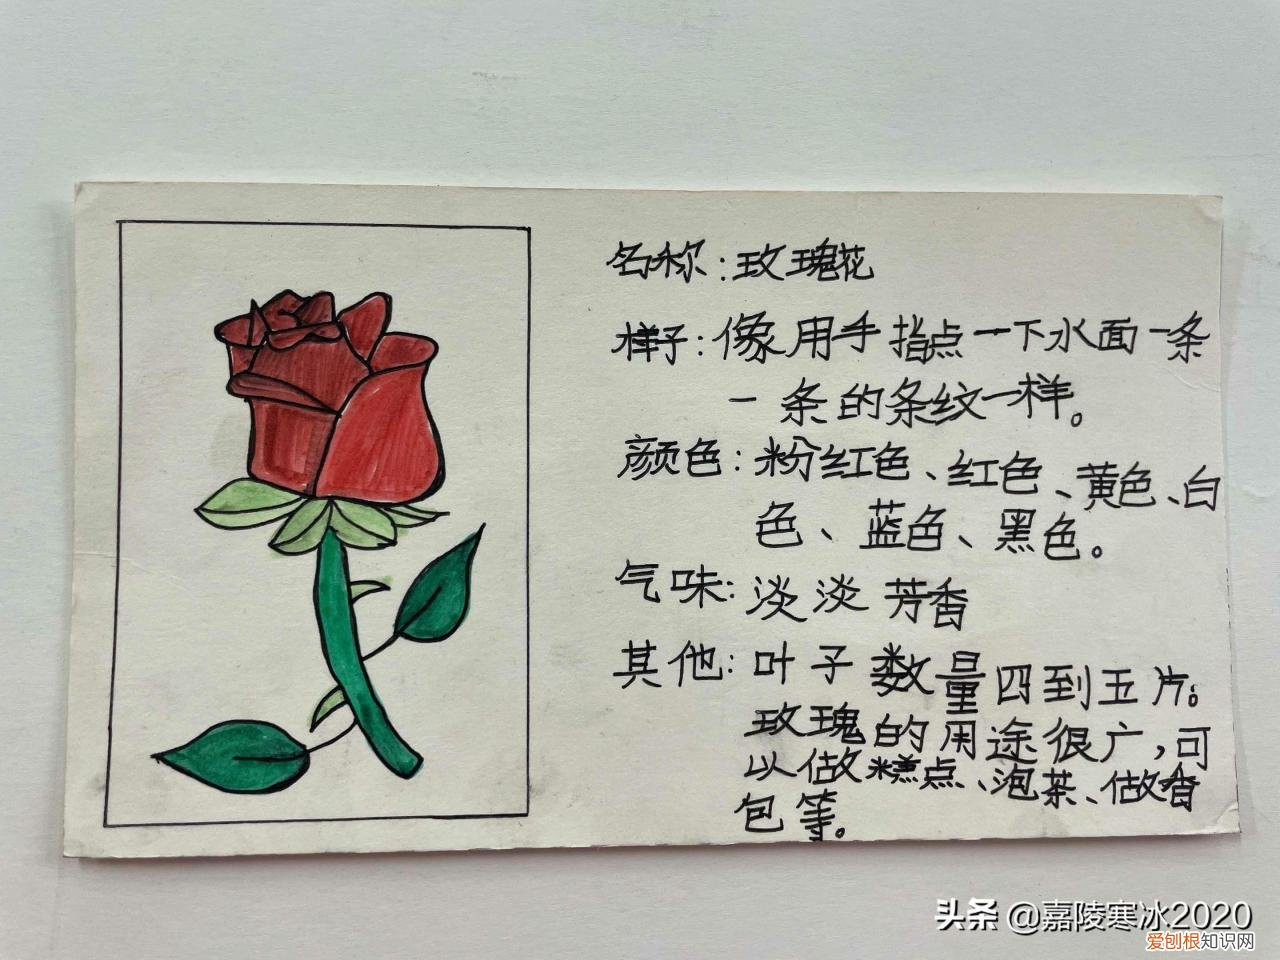 名称:玫瑰花
样子:像用手指点一下水面一条
一条的条纹一样。
颜色:粉红色、红色、黄色、白
色、蓝色、黑色。
气味:淡淡芳香
其他:叶子数量四到五片。
玫瑰的用途很广,可
以做糕点、泡茶、做香
包等。
头条 @嘉陵寒冰2020
爱刨根知识网